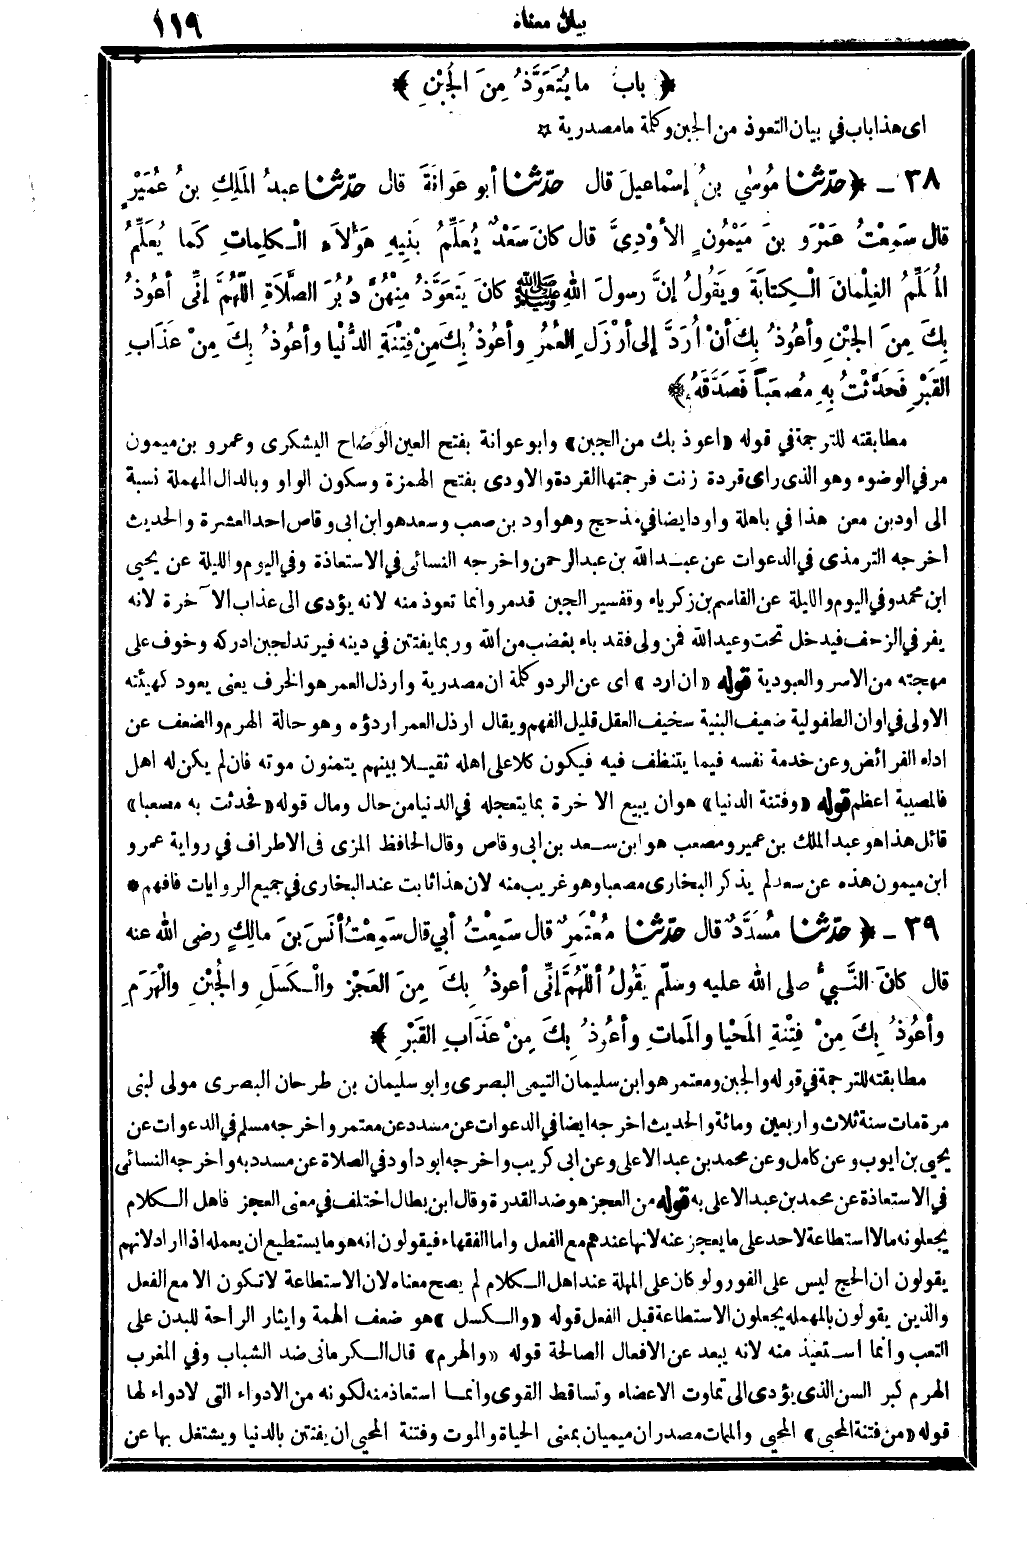 بيان معناه ١١٩
﴿ باب ما يُتَعَوَّذُ مِنَ الْجُبْنِ ﴾
اى هذا باب في بيان التعوذ من الجبن وكلمة ما مصدرية ✡
٣٨ ـ ﴿ حدّثنا مُوسٰي بنُ إسْماعيلَ قال حدّثنا أبو عَوَانَةَ قال حدّثنا عبدُ المَلِكِ بنُ عُمَيْرٍ
قال سَمِعْتُ عَمْرَو بنَ مَيْمُونٍ الأوْدِيَّ قال كانَ سَعْدٌ يُعَلِّمُ بَنِيهِ هَؤُلاَءِ الْكلِماتِ كَما يُعَلِّمُ
المُعَلِّمُ الغِلْمانَ الْكِتابَةَ ويَقُولُ إنَّ رسولَ اللهِ ﷺ كانَ يَتَعَوَّذُ مِنْهُنَّ دُبُرَ الصَّلَاةِ اللّهُمَّ إنِّى أعُوذُ
بِكَ مِنَ الجُبْنِ وأعُوذُ بِكَ أنْ أُرَدَّ إلى أرْذَلِ العُمُرِ وأعُوذُ بِكَ مِنْ فِتْنَةِ الدُّنْيا وأعُوذُ بِكَ مِنْ عَذَابِ
القَبْرِ فَحَدَّثْتُ بِهِ مُصعَباً فَصَدَّقَهُ ﴾
مطابقته للترجمة في قوله «اعوذ بك من الجبن» وابو عوانة بفتح العين الوضاح اليشكرى وعمرو بن ميمون
مر في الوضوء وهو الذى راى قردة زنت فرجمتها القردة والاودى بفتح الهمزة وسكون الواو وبالدال المهملة نسبة
الى اود بن معن هذا في باهلة واود ايضا في مذحج وهو اود بن صعب وسعد هو ابن ابى وقاص احد العشرة والحديث
أخرجه الترمذى في الدعوات عن عبد الله بن عبد الرحمن واخرجه النسائى في الاستعاذة وفي اليوم والليلة عن يحيى
ابن محمد وفي اليوم والليلة عن القاسم بن زكرياء وتفسير الجبن قد مر وانما تعوذ منه لانه يؤدى الى عذاب الآخرة لانه
يفر في الزحف فيدخل تحت وعيد الله فمن ولى فقد باء بغضب من الله وربما يفتتن في دينه فيرتد لجبن ادركه وخوف على
مهجته من الاسر والعبودية قوله «ان ارد» اى عن الرد وكلمة ان مصدرية وارذل العمر هو الخرف يعنى يعود كهيئته
الاولى في اوان الطفولية ضعيف البنية سخيف العقل قليل الفهم ويقال ارذل العمر اردؤه وهو حالة الهرم والضعف عن
اداء الفرائض وعن خدمة نفسه فيما يتنظف فيه فيكون كلا على اهله ثقيلا بينهم يتمنون موته فان لم يكن له اهل
فالمصيبة اعظم قوله «وفتنة الدنيا» هو ان يبيع الاخرة بما يتعجله في الدنيا من حال ومال قوله «فحدثت به مصعبا»
قائل هذا هو عبد الملك بن عمير ومصعب هو ابن سعد بن ابى وقاص وقال الحافظ المزى فى الاطراف في رواية عمرو
ابن ميمون هذه عن سعد لم يذكر البخارى مصعبا وهو غريب منه لان هذا ثابت عند البخارى في جميع الروايات فافهم *
٣٩ ـ ﴿ حدّثنا مُسَدَّدٌ قال حدّثنا مُعْتَمِرٌ قال سَمِعْتُ أبي قال سَمِعْتُ أنَسَ بنَ مالِكٍ رضى الله عنه
قال كانَ النَّبيُّ صلى الله عليه وسلّم يَقُولُ أللّهُمَّ إنِّى أعوذُ بِكَ مِنَ العَجْزِ والْكَسَلِ والجُبْنِ والْهَرَمِ
وأعُوذُ بِكَ مِنْ فِتْنَةِ المَحْيا والمَماتِ وأعُوذُ بِكَ مِنْ عَذَابِ القَبْرِ ﴾
مطابقته للترجمة في قوله والجبن ومعتمر هو ابن سليمان التيمى البصرى وابو سليمان بن طرحان البصرى مولى لبنى
مرة مات سنة ثلاث واربعين ومائة والحديث اخرجه ايضا في الدعوات عن مسدد عن معتمر واخرجه مسلم في الدعوات عن
يحيى بن ايوب وعن كامل وعن محمد بن عبد الاعلى وعن ابى كريب واخرجه ابو داود في الصلاة عن مسدد به واخرجه النسائى
في الاستعاذة عن محمد بن عبد الاعلى به قوله من العجز هو ضد القدرة وقال ابن بطال اختلف في معنى العجز فاهل الكلام
يجعلونه مالا استطاعة لاحد على ما يعجز عنه لانها عندهم مع الفعل واما الفقهاء فيقولون انه هو ما يستطيع ان يعمله اذا اراد لانهم
يقولون ان الحج ليس على الفور ولو كان على المهلة عند اهل الكلام لم يصح معناه لان الاستطاعة لا تكون الا مع الفعل
والذين يقولون بالمهملة يجعلون الاستطاعة قبل الفعل قوله «والكسل» هو ضعف الهمة وايثار الراحة للبدن على
التعب وانما استعيذ منه لانه يبعد عن الافعال الصالحة قوله «والهرم» قال الكرمانى ضد الشباب وفي المغرب
الهرم كبر السن الذى يؤدى الى تماوت الاعضاء وتساقط القوى وانما استعاذ منه لكونه من الادواء التى لا دواء لها
قوله «من فتنة المحيى» المحيى والممات مصدران ميميان بمعنى الحياة والموت وفتنة المحيى ان يفتتن بالدنيا ويشتغل بها عن